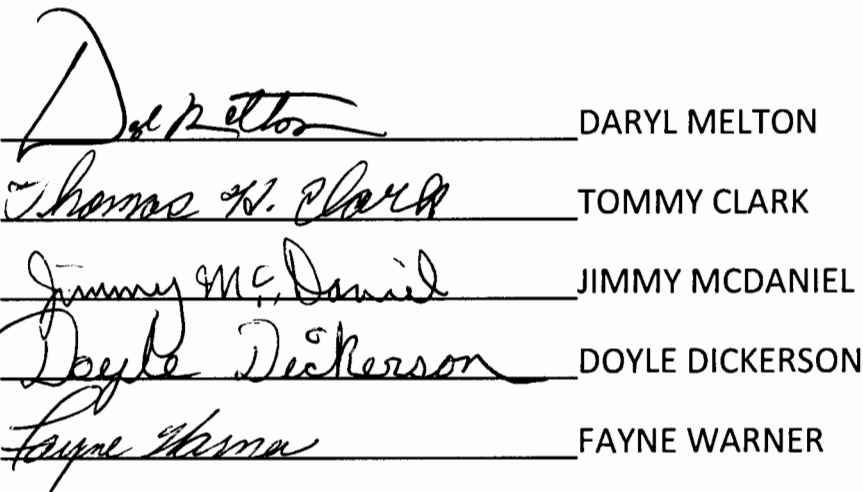 Daryl Melton DARYL MELTON
Thomas H. Clark TOMMY CLARK
Jimmy Mc Daniel JIMMY MCDANIEL
Doyle Dickerson DOYLE DICKERSON
Fayne Warner FAYNE WARNER